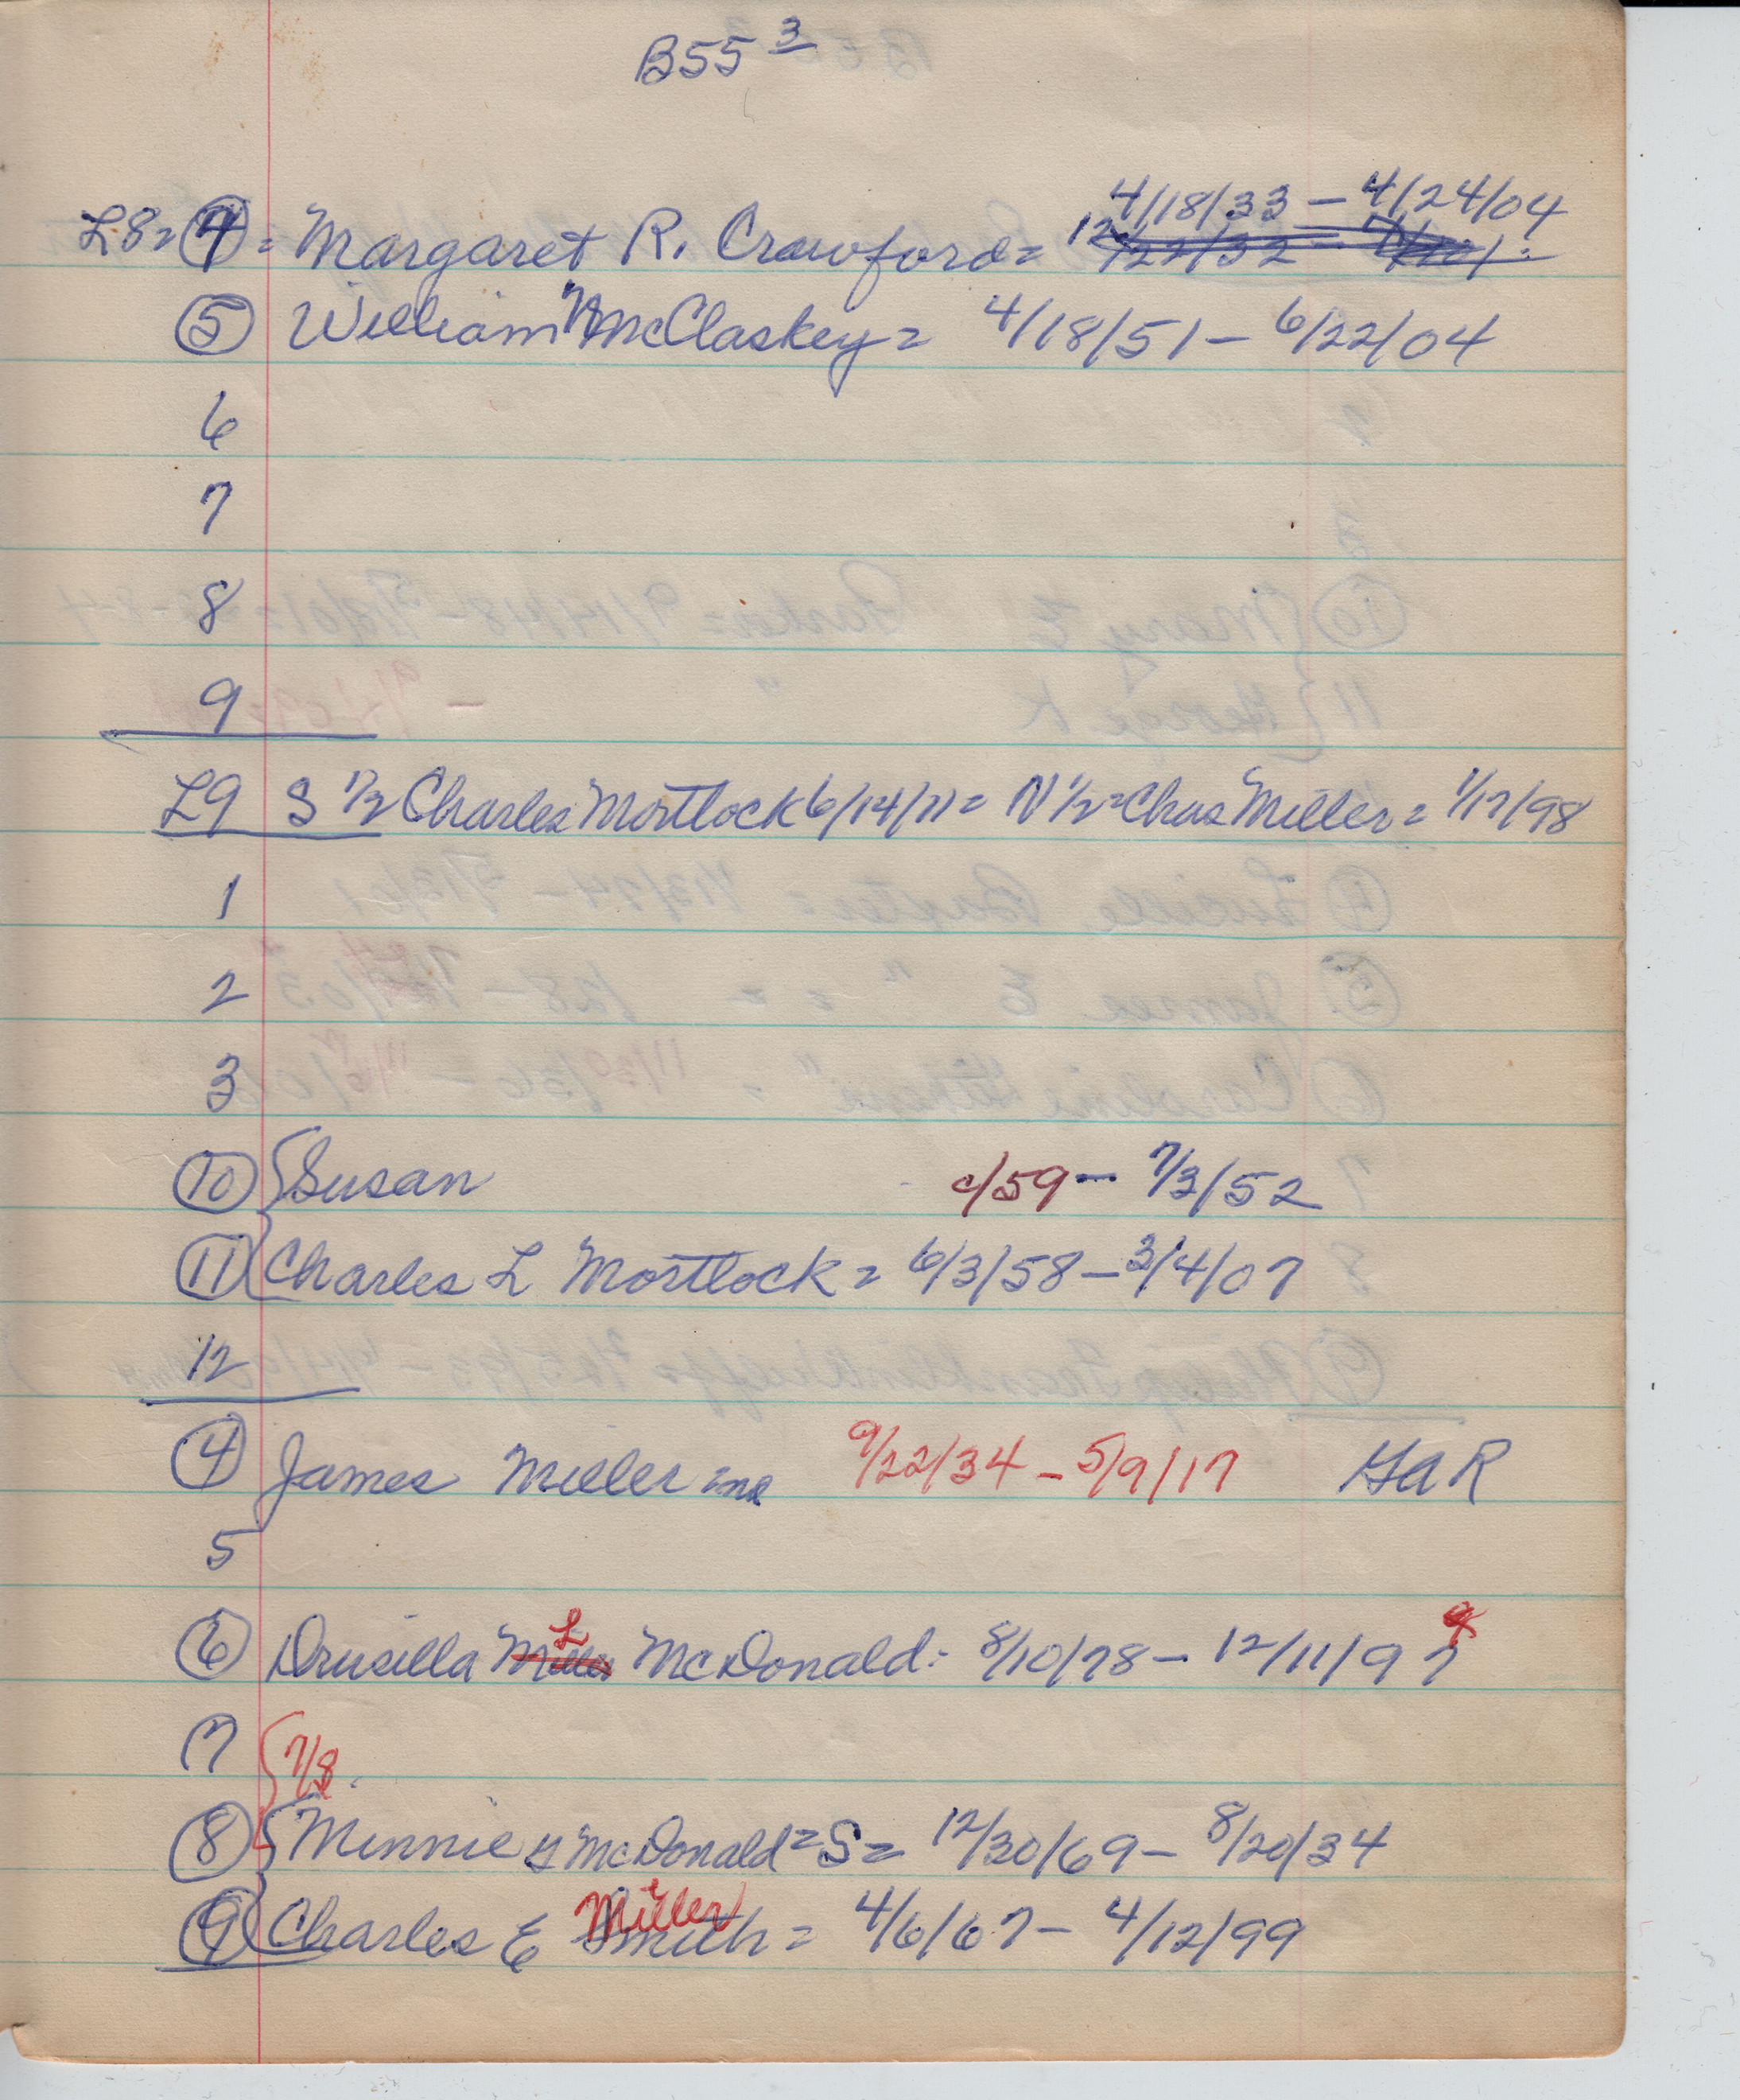 B55 3
4/18/33 – 4/24/04
L8 = 4 = Margaret R. Crawford = 12/22/32 –
5 William McClaskey = 4/18/51 – 6/22/04
6
7
8
9
L9 S 1/2 Charles Mortlock 6/14/71 = N 1/2 = Chas Miller = 1/17/98
1
2
3
10 Susan c/59 – 7/3/52
11 Charles L Mortlock = 6/3/58 – 3/4/07
12
4 James Miller = 9/22/34 – 5/9/17 GAR
5
L
6 Drusilla Miller McDonald: 8/10/78 – 12/11/97
7 7/8
8 Minnie McDonald = S = 12/30/69 – 8/20/34
Miller
9 Charles E Smith = 4/6/67 – 4/12/99